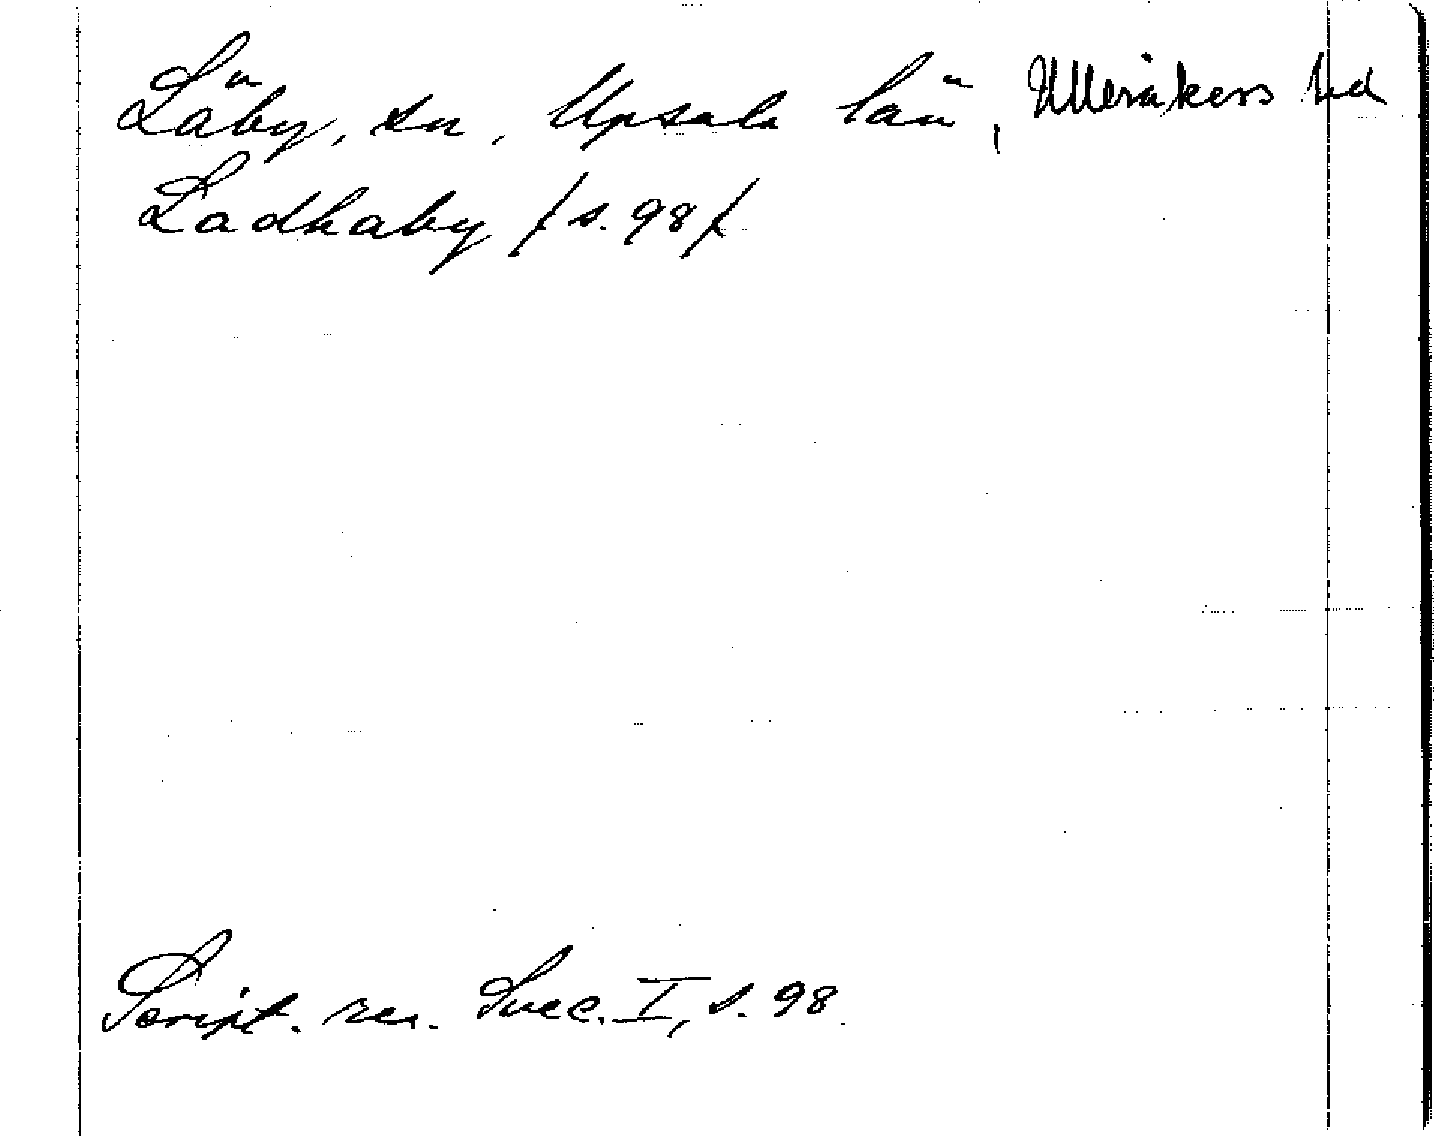 Läby, sn, Upsala län, Ulleråkers hd
Ladhaby /s. 98/
Script. rer. Svec. I, s. 98